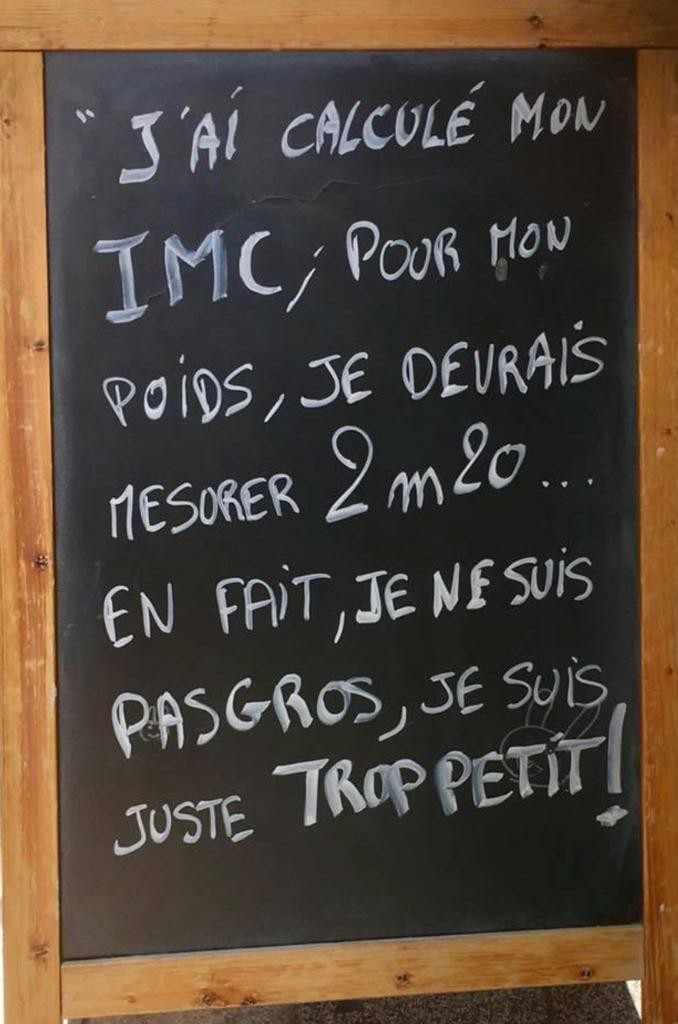 " J'AI CALCULÉ MON
IMC, POUR MON
POIDS, JE DEVRAIS
MESURER 2m20...
EN FAIT, JE NE SUIS
PAS GROS, JE SUIS
JUSTE TROP PETIT!